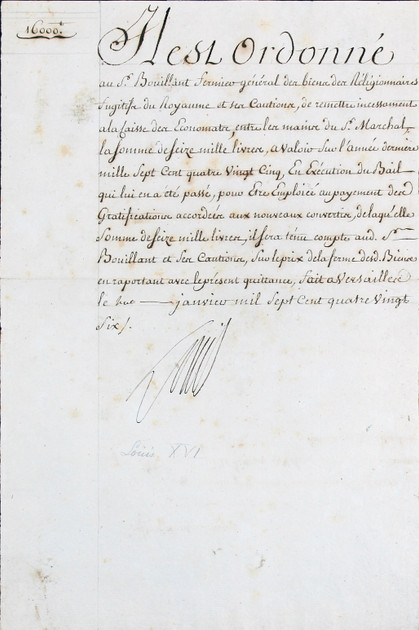 16000.#
Il est ordonné
au S.r Bouillant Fermier général des biens des Réligionnaires
fugitifs du Royaume et ses Cautions, de remettre incessament
à la Caisse des Economats, entre les mains du S.r Marchal,
la somme de seize mille livres, a valoir sur l'année derniere
mille Sept Cent quatre Vingt Cinq, En Exécution du Bail
qui lui en a été passé, pour Etre Emploiée au payement des
Gratifications accordées aux nouveaux convertis, de laquelle
Somme de seize mille livres, il sera tenu compte aud. S.r
Bouillant et Ses Cautions, Sur le prix de la ferme desd. Biens
en raportant avec le présent quittance, fait a Versailles
le janvier mil Sept Cent quatre Vingt
Six /.
Louis
Louis XVI